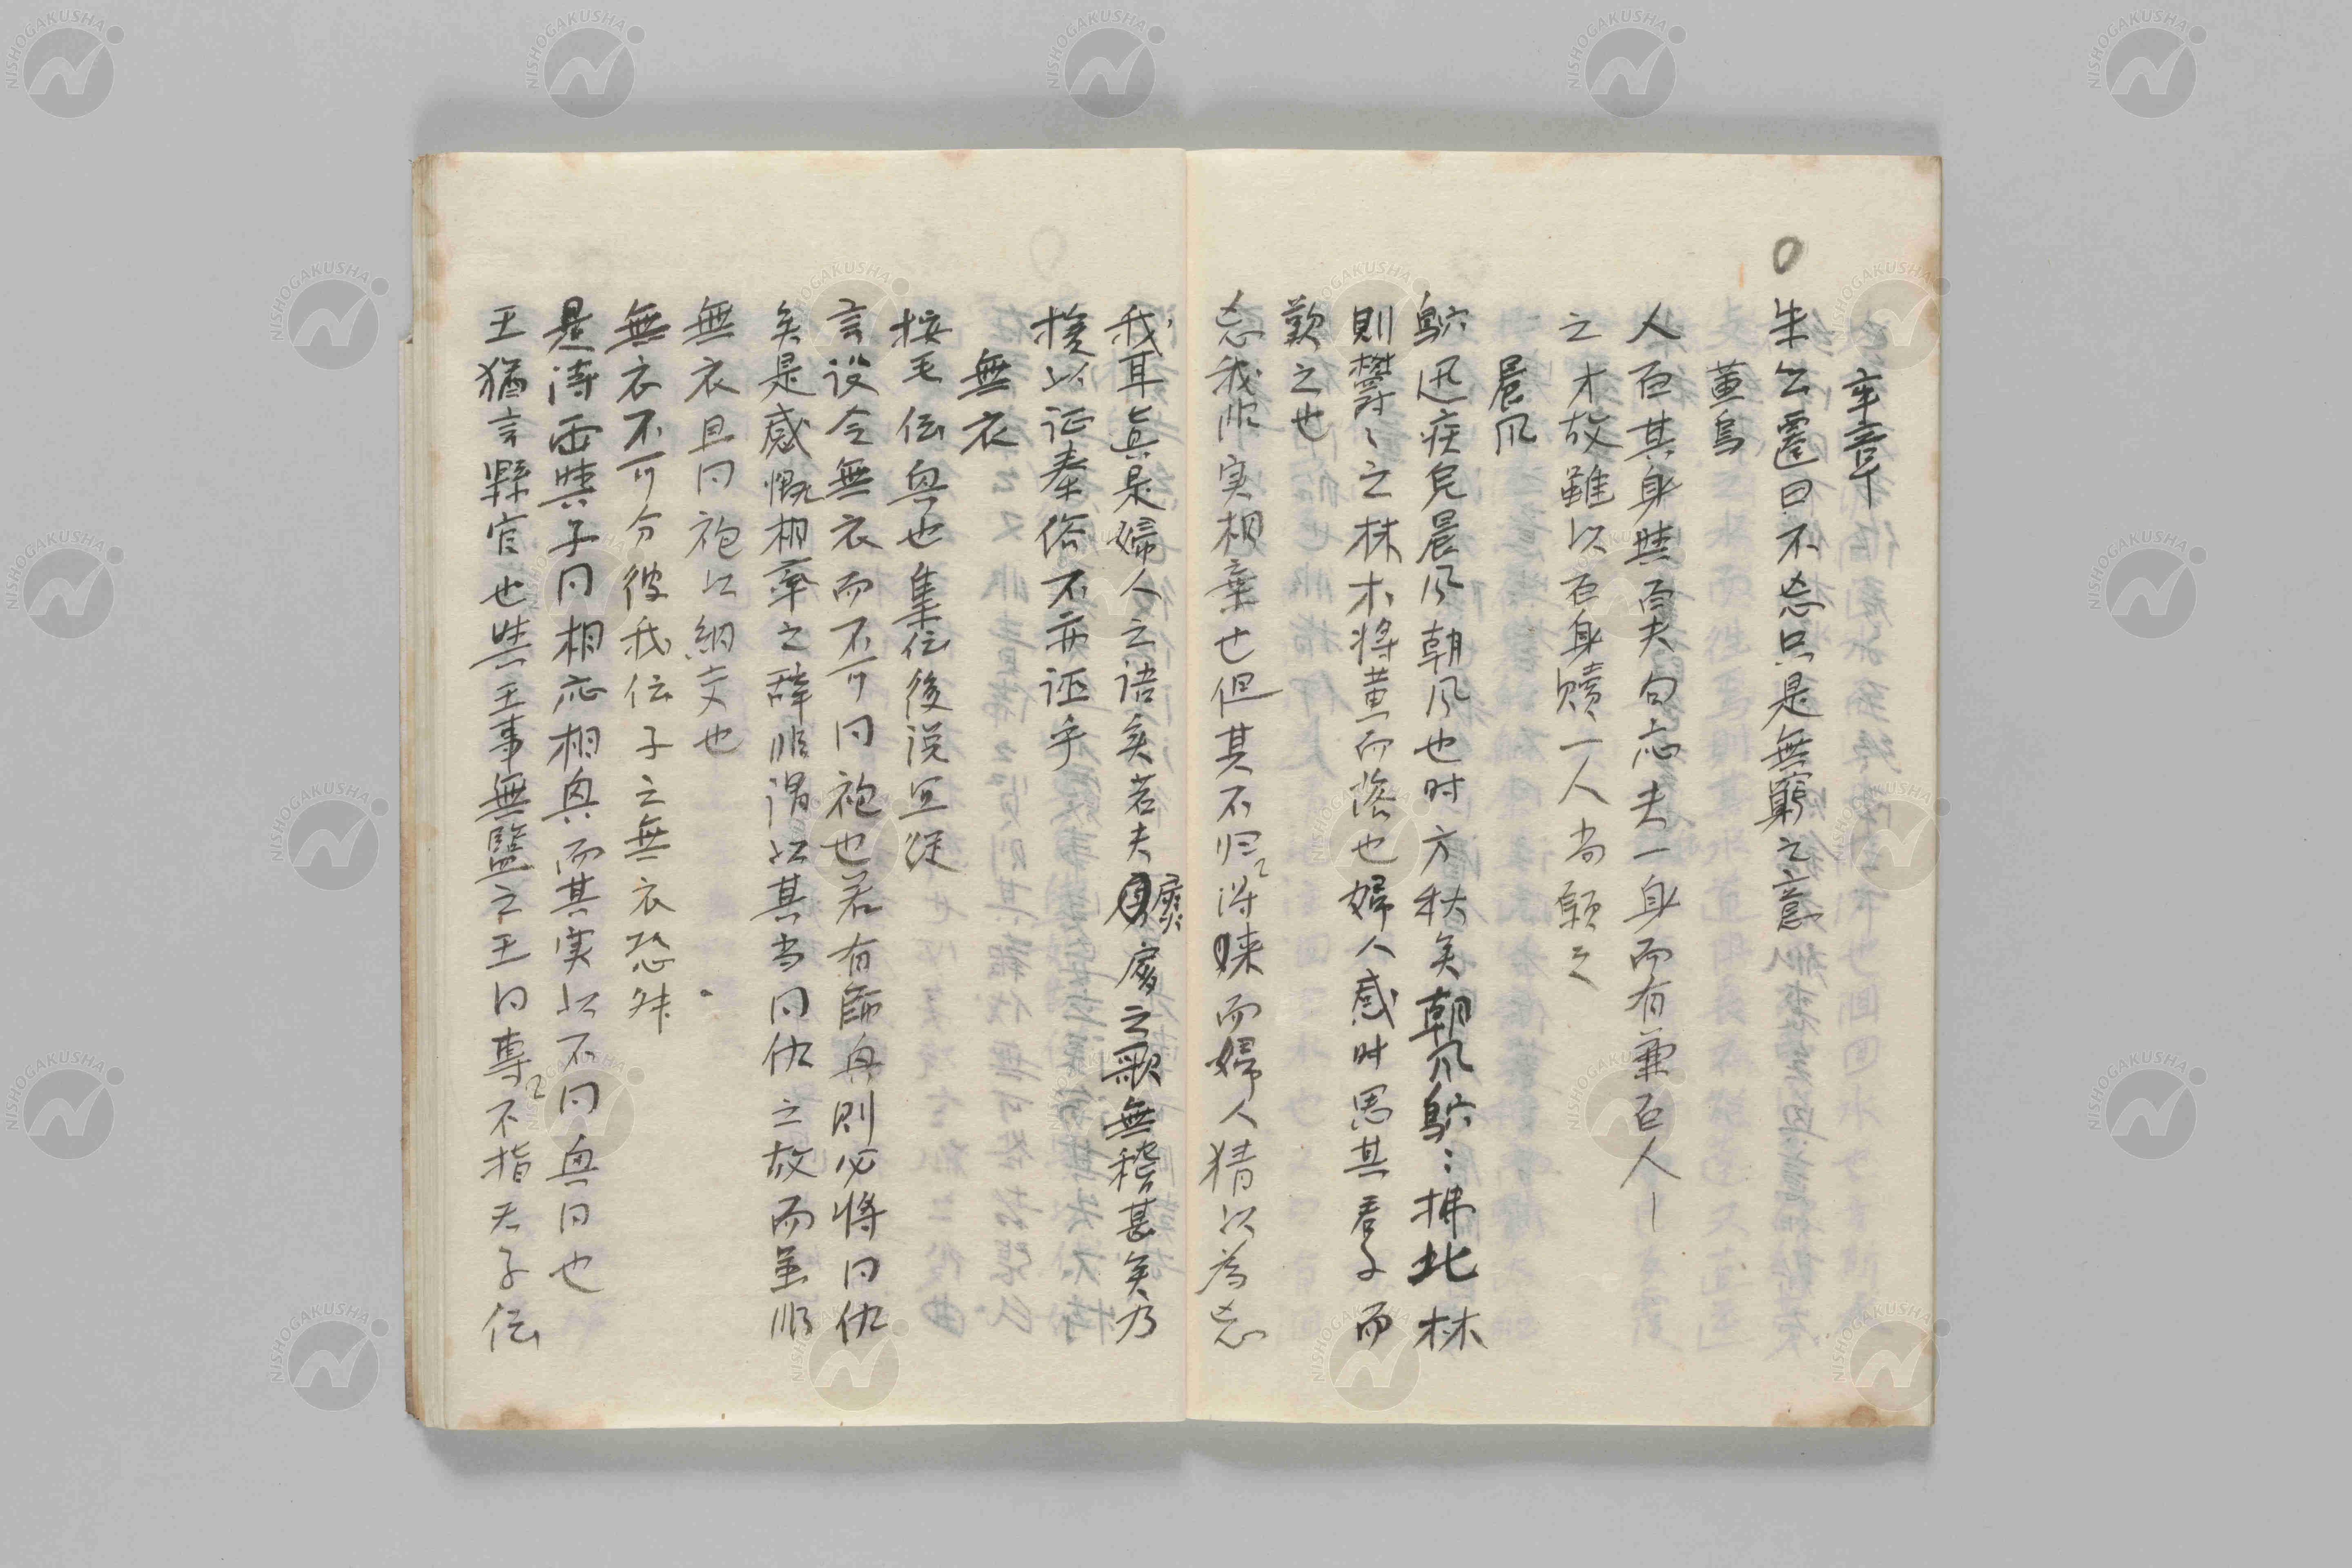 卒章
朱公遷曰不忘只是無窮之意
黄鳥
人百其身 無百夫句応夫一身而有兼百人
之才故雖以百身贖一人尚願之
晨风
鴥迅疾皃晨风朝风也时方秋矣朝风鴥〻拂北林
則欝〻之林木将黄而落也婦人感时思其君子而
歎之也
忘我非実相棄也但其不归得来而婦人猜以為忘
我耳真是婦人之语矣若夫扊扅之歌無稽甚矣乃
援以证秦俗不亦诬乎
無衣
按毛伝與也集伝後说宜従
言设令無衣而不可同袍也若有師與則必将同仇
矣是感慨相率之辞非谓以其尚同仇之故而並順
無衣且同袍以綢交也
無衣不可分彼我伝子之無衣恐舛
是诗而與子同相応相與而其実以不同與同也
王猶言縣官也 王事無盬之王同専不指天子伝
NISHOGAKUSHA